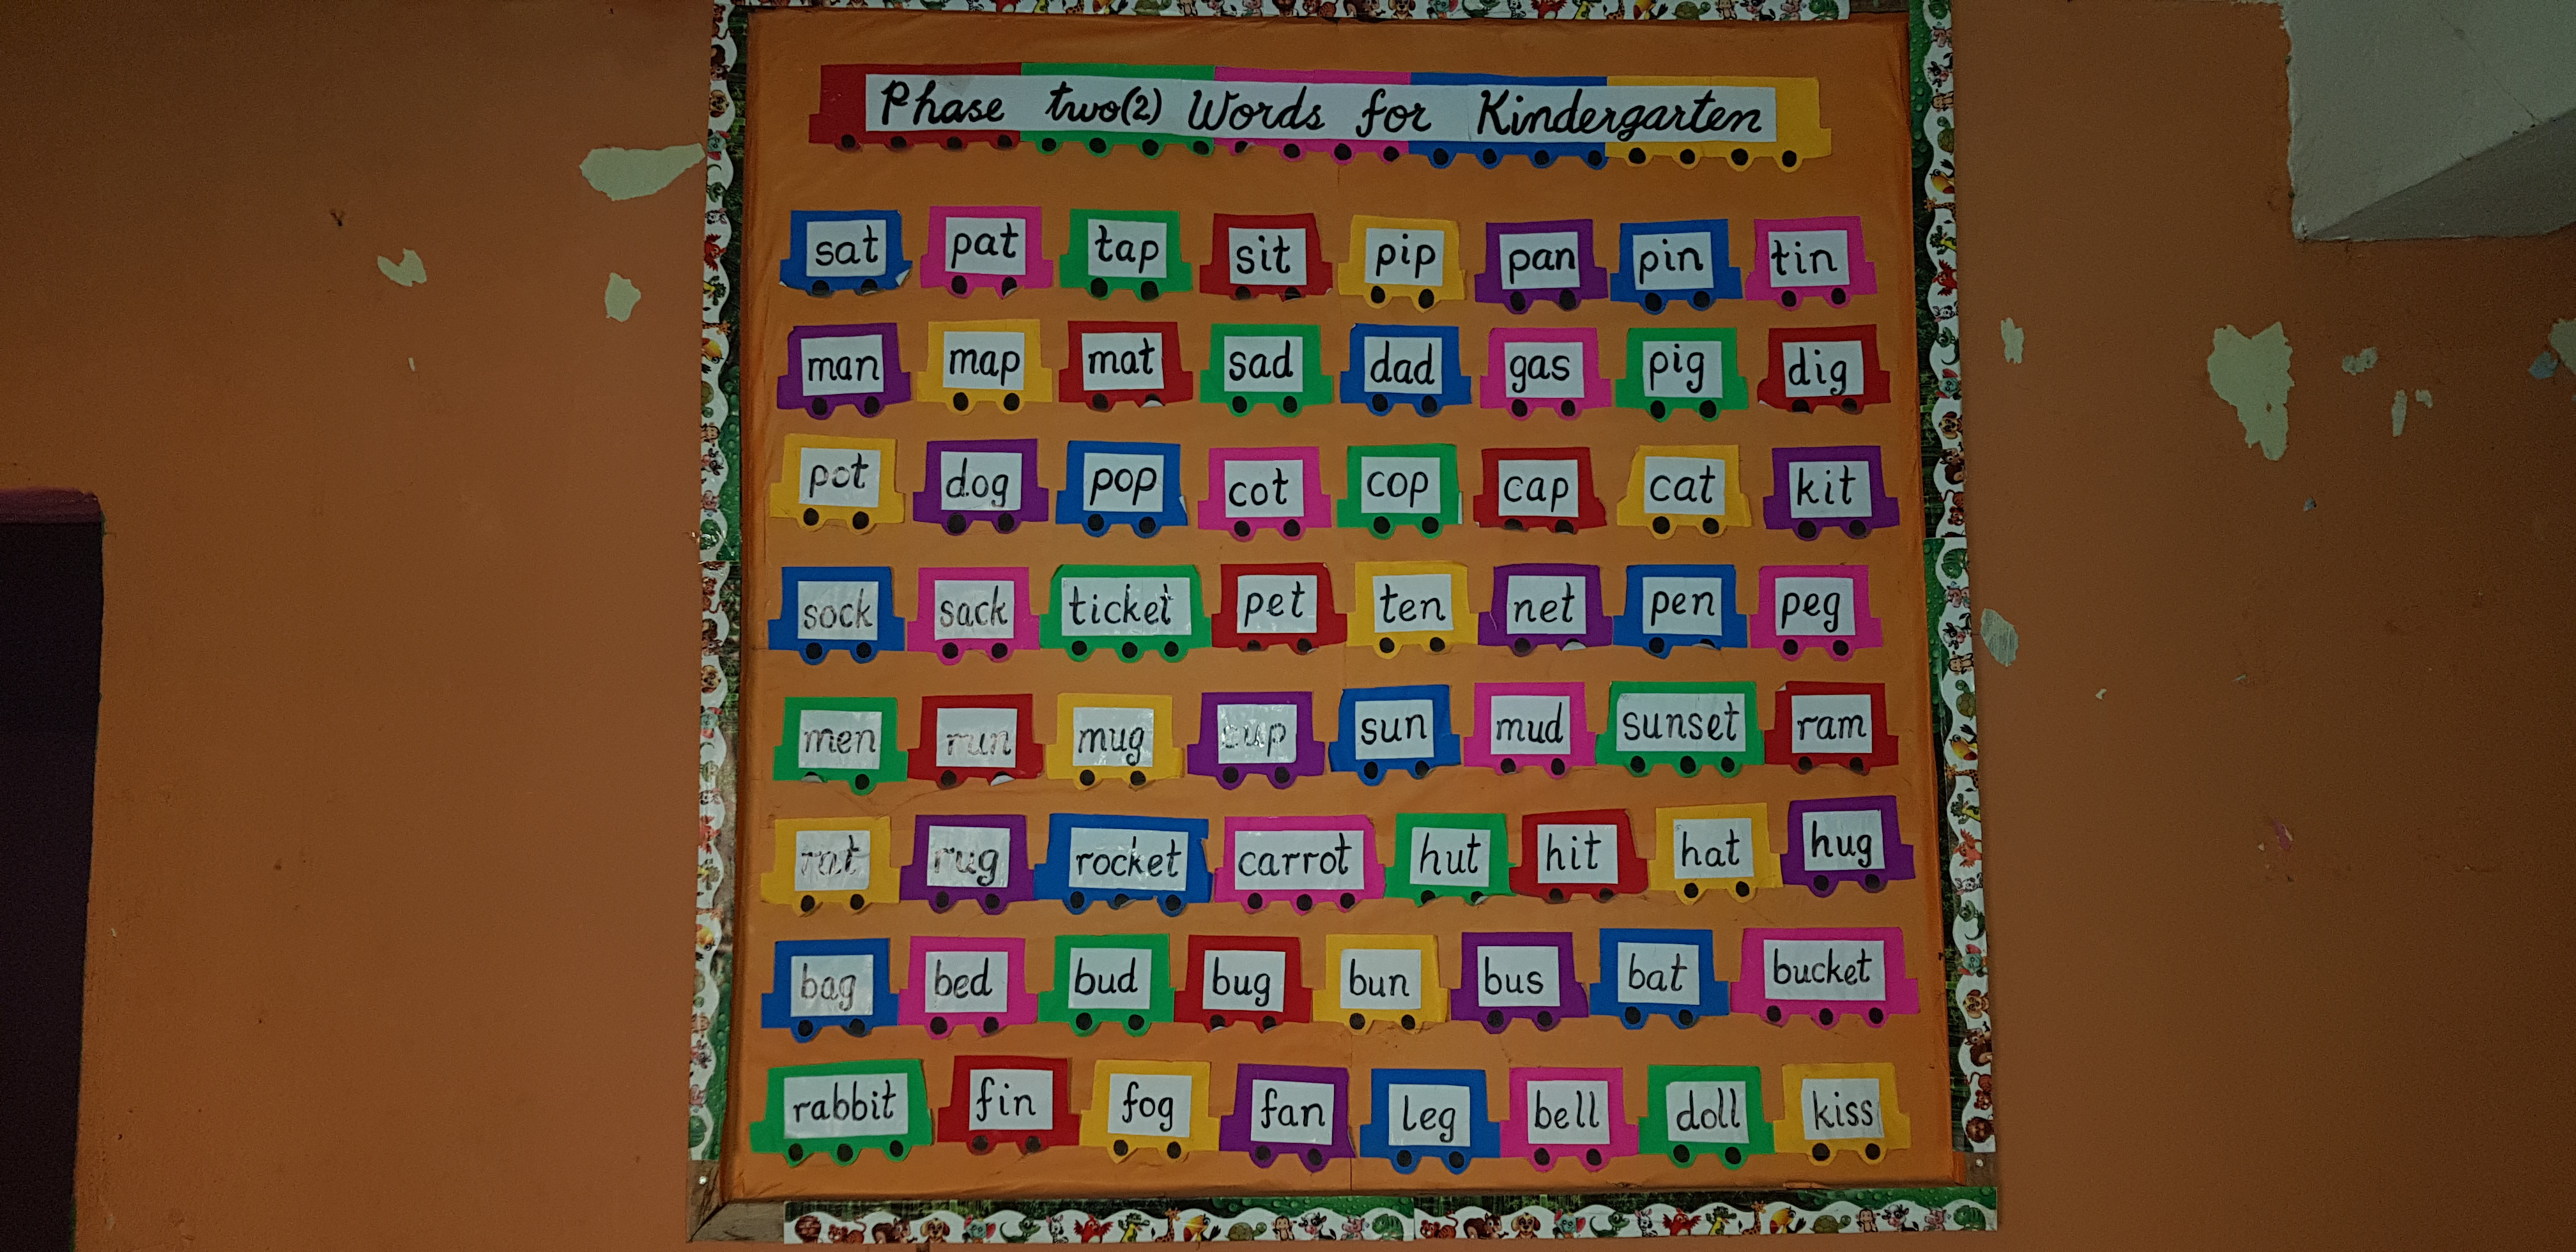 Phase two(2) Words for Kindergarten
sat pat tap sit pip pan pin tin
man map mat sad dad gas pig dig
pot dog pop cot cop cap cat kit
sock sack ticket pet ten net pen peg
men run mug cup sun mud sunset ram
rat rug rocket carrot hut hit hat hug
bag bed bud bug bun bus bat bucket
rabbit fin fog fan leg bell doll kiss